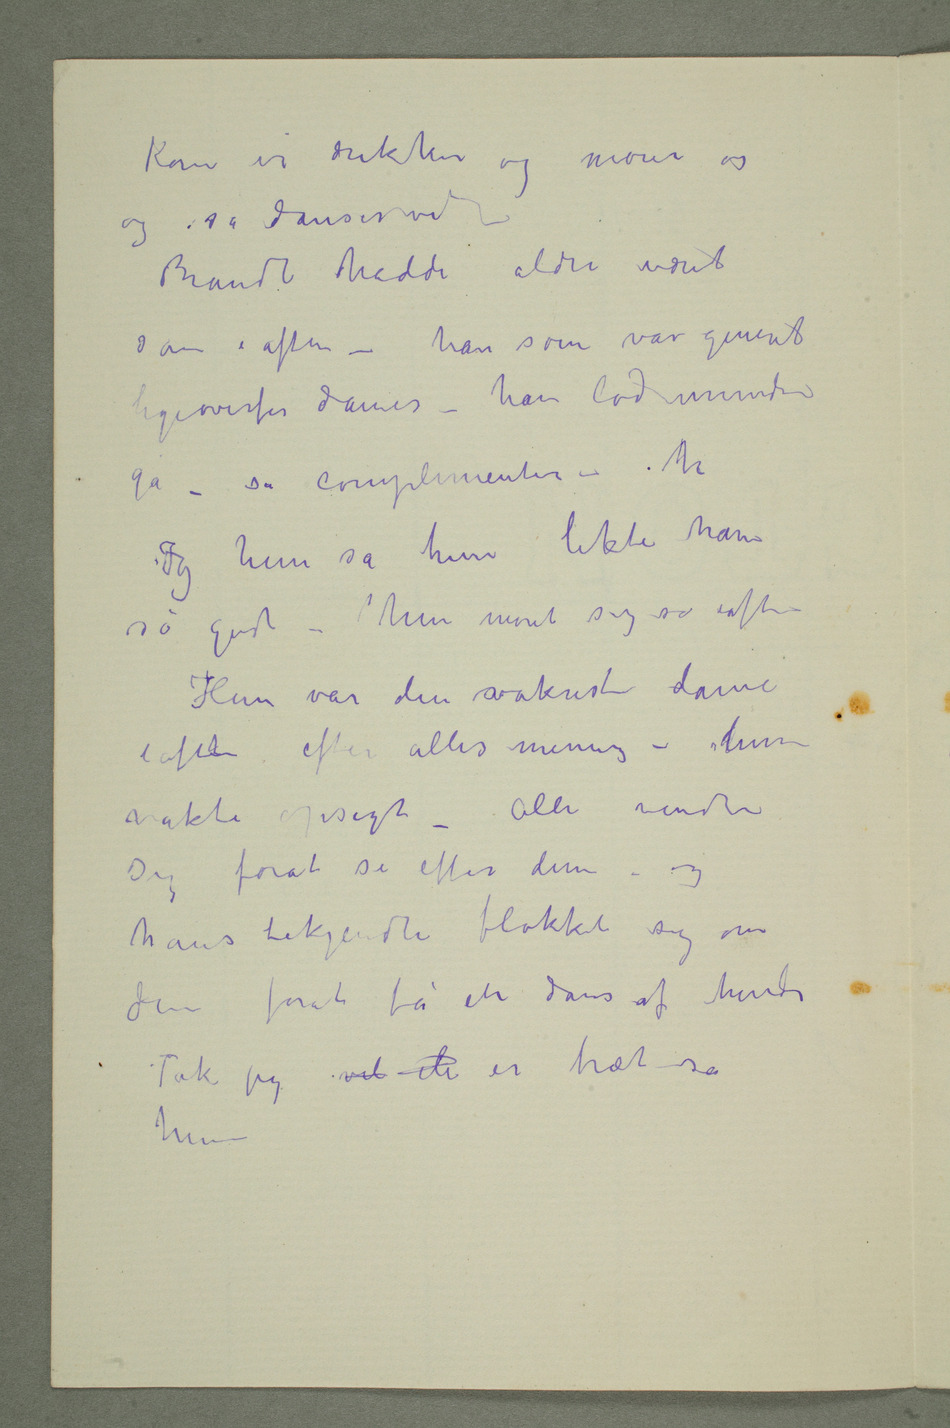 Kom vi drikker og morer os
og så danser vi –
Brandt hadde aldri været
som iaften – han som var generet
ligeoverfor damer – han lod munden
gå – sa complimenter –
Og hun sa hun likte ham
så godt – hun moret sig så iaften
Hun var den vakreste dame
iaften efter alles mening – hun
vakte opsigt – alle vendte
sig forat se efter dem – og
hans bekjendte flokket sig om
dem forat få en dans af hende
Tak jeg vil ikke er træt – sa
hun –